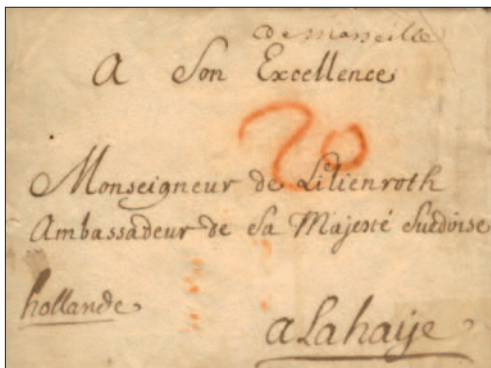 de Marseille
A Son Excellence
20
Monseigneur de Lilienroth
Ambassadeur de Sa Majesté Suedoise
hollande
a Lahaÿe